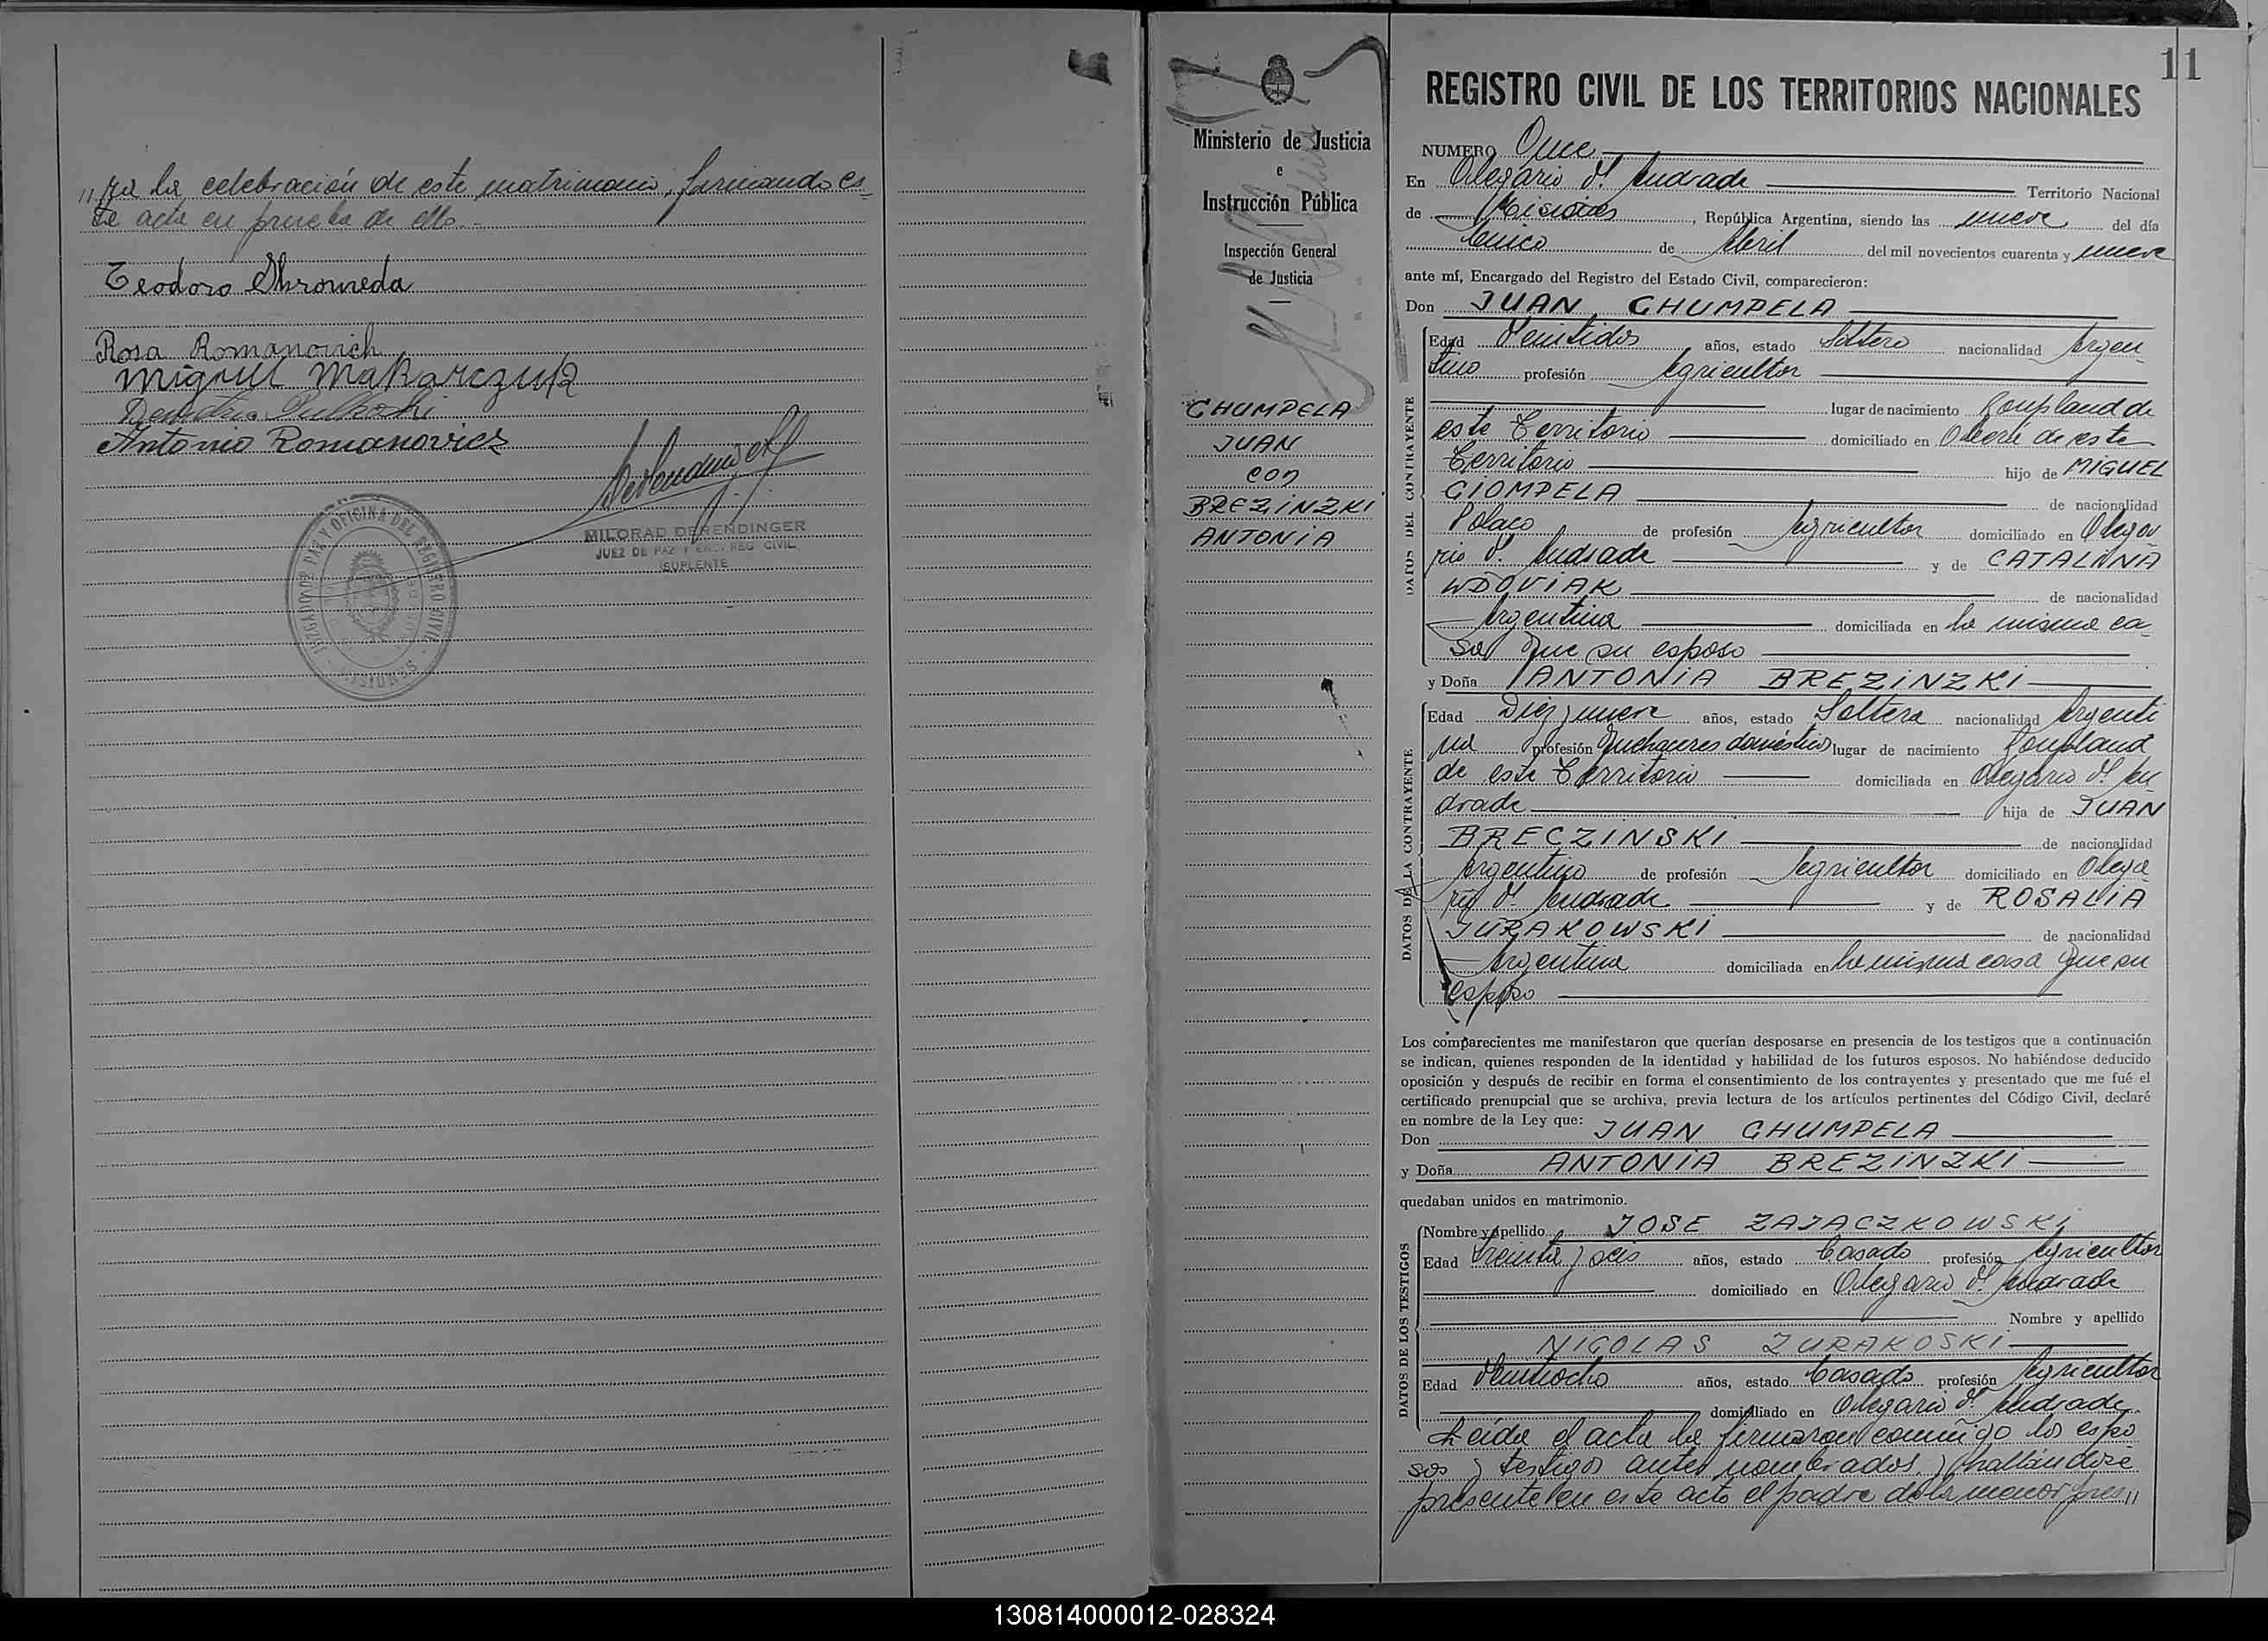 //ra la celebración de este matrimonio, firmando es-
te acta en prueba de ello.-
Teodoro Shromeda
Rosa Romanovich
Miguel Makarczuk
Antonio Romanovicz
MILORAD DERENDINGER
JUEZ DE PAZ Y ENC. REG. CIVIL
SUPLENTE
JUZGADO DE PAZ Y OFICINA DEL REGISTRO CIVIL
MISIONES
Ministerio de Justicia
e
Instrucción Pública
Inspección General
de Justicia
CHUMPELA
JUAN
con
BREZINZKI
ANTONIA
11
REGISTRO CIVIL DE LOS TERRITORIOS NACIONALES
NUMERO Once
En Olegario V. Andrade Territorio Nacional
de Misiones, República Argentina, siendo las nueve del día
cinco de Abril del mil novecientos cuarenta y nueve
ante mí, Encargado del Registro del Estado Civil, comparecieron:
Don JUAN CHUMPELA
DATOS DEL CONTRAYENTE
Edad Veintidos años, estado Soltero nacionalidad Argen
tino profesión Agricultor
lugar de nacimiento Goupland de
este Territorio domiciliado en Oberá de este
Territorio hijo de MIGUEL
GIOMPELA de nacionalidad
Polaco de profesión Agricultor domiciliado en Olega
rio V. Andrade y de CATALINA
WDOVIAK de nacionalidad
Argentina domiciliada en la misma ca-
sa que su esposo
y Doña ANTONIA BREZINZKI
DATOS DE LA CONTRAYENTE
Edad Diez y nueve años, estado Soltera nacionalidad Argenti
na profesión Quehaceres domésticos lugar de nacimiento Goupland
de este Territorio domiciliada en Olegario V. An
drade hija de JUAN
BRECZINSKI de nacionalidad
Argentino de profesión Agricultor domiciliado en Olega
rio V. Andrade y de ROSALIA
JURAKOWSKI de nacionalidad
Argentina domiciliada en la misma casa que su
esposo
Los comparecientes me manifestaron que querían desposarse en presencia de los testigos que a continuación
se indican, quienes responden de la identidad y habilidad de los futuros esposos. No habiéndose deducido
oposición y después de recibir en forma el consentimiento de los contrayentes y presentado que me fué el
certificado prenupcial que se archiva, previa lectura de los artículos pertinentes del Código Civil, declaré
en nombre de la Ley que:
Don JUAN CHUMPELA
y Doña ANTONIA BREZINZKI
quedaban unidos en matrimonio.
DATOS DE LOS TESTIGOS
Nombre y Apellido JOSE ZAJACZKOWSKI
Edad treinta y seis años, estado Casado profesión Agricultor
domiciliado en Olegario V. Andrade
Nombre y apellido
NICOLAS ZURAKOSKI
Edad Veintiocho años, estado Casado profesión Agricultor
domiciliado en Olegario V. Andrade.
Leída el acta la firmaron conmigo los espo
sos y testigos antes nombrados, y hallándose
presente en este acto el padre de la menor pres//
130814000012-028324